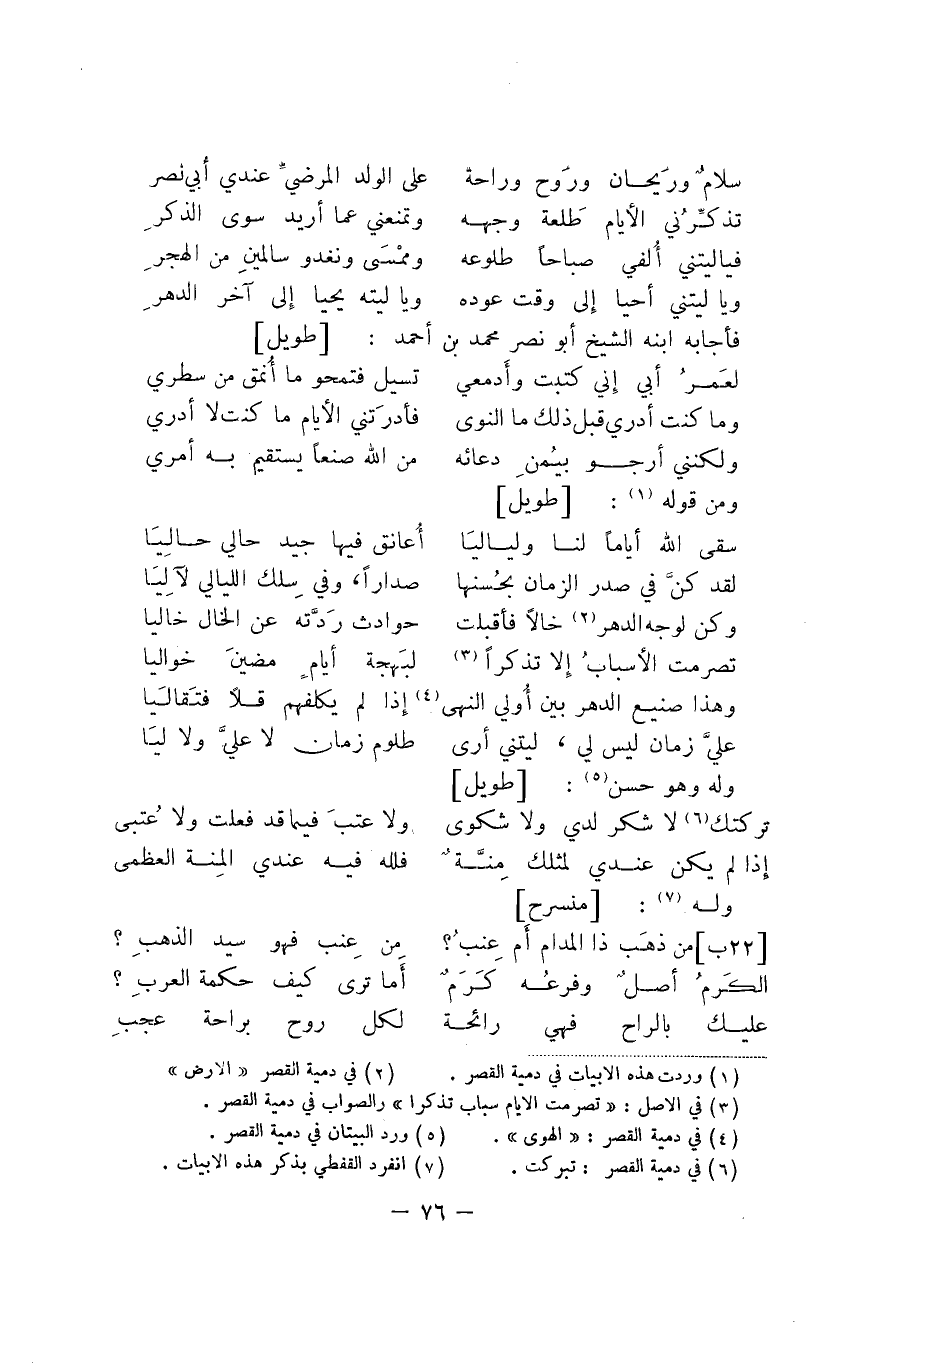 سلامٌ ورَيحان ورَوح وراحة على الولد المرضيّ عندي أبي نصر
تذكّرُني الأيام طَلعة وجهه وتمنعني عما أريد سوى الذكرِ
فياليتني أُلفي صباحاً طلوعه وممْسَى ونغدو سالمينِ من الهجرِ
ويا ليتني أحيا إلى وقت عوده ويا ليته يحيا إلى آخر الدهرِ
فأجابه ابنه الشيخ أبو نصر محمد بن أحمد : [طويل]
لعَمرُ أبي إني كتبت وأدمعي تسيل فتمحو ما أُنمق من سطري
وما كنت أدري قبل ذلك ما النوى فأدرَتني الأيام ما كنت لا أدري
ولكنني أرجو بيُمنِ دعائه من الله صنعاً يستقيم به أمري
ومن قوله (١) : [طويل]
سقى الله أياماً لنا ولياليَا أُعانق فيها جيد حالي حالِيَا
لقد كنَّ في صدر الزمان بحُسنها صداراً، وفي سِلك الليالي لآلِيَا
وكن لوجه الدهر(٢) خالاً فأقبلت حوادث رَدَّته عن الخال خاليا
تصرمت الأسبابُ إلا تذكراً (٣) لبَهجة أيامٍ مضينَ خواليا
وهذا صنيع الدهر بين أُولي النهى(٤) إذا لم يكلفهم قلاً فتَقاليَا
عليَّ زمان ليس لي ، ليتني أرى طلوم زمان لا عليَّ ولا ليَا
وله وهو حسن(٥) : [طويل]
تركتك(٦) لا شكر لدي ولا شكوى ولا عتبَ فيما قد فعلت ولا عُتبى
إذا لم يكن عندي لمثلك مِنَّةٌ فلله فيه عندي المِنة العظمى
وله (٧) : [منسرح]
[٢٢ب] من ذهَب ذا المدام أم عِنبُ؟ مِن عِنب فهو سيد الذهبِ ؟
الكَرمُ أصلٌ وفرعُه كَرَمٌ أما ترى كيف حكمة العربِ ؟
عليك بالراح فهي رائحة لكل روح براحة عجبِ
(١) وردت هذه الابيات في دمية القصر . (٢) في دمية القصر « الارض »
(٣) في الاصل : « تصرمت الايام سباب تذكرا » والصواب في دمية القصر .
(٤) في دمية القصر : « الهوى » . (٥) ورد البيتان في دمية القصر .
(٦) في دمية القصر : تبركت . (٧) انفرد القفطي بذكر هذه الابيات .
— ٧٦ —